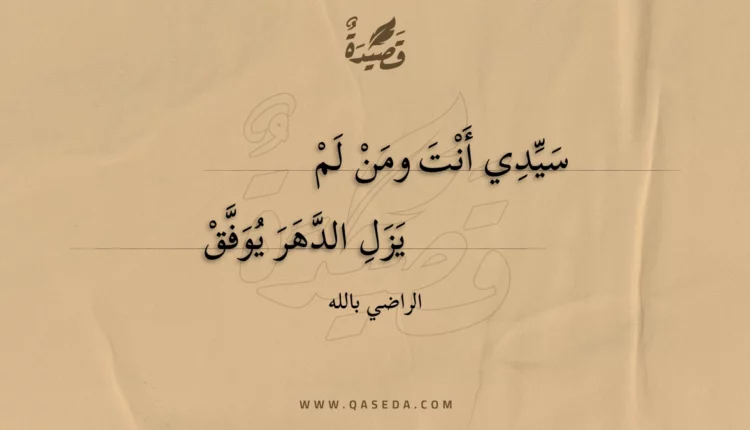 قَصِيدَةٌ
سَيِّدِي أَنْتَ ومَنْ لَمْ
يَزَلِ الدَّهَرَ يُوَفَّقْ
الراضي بالله
WWW.QASEDA.COM